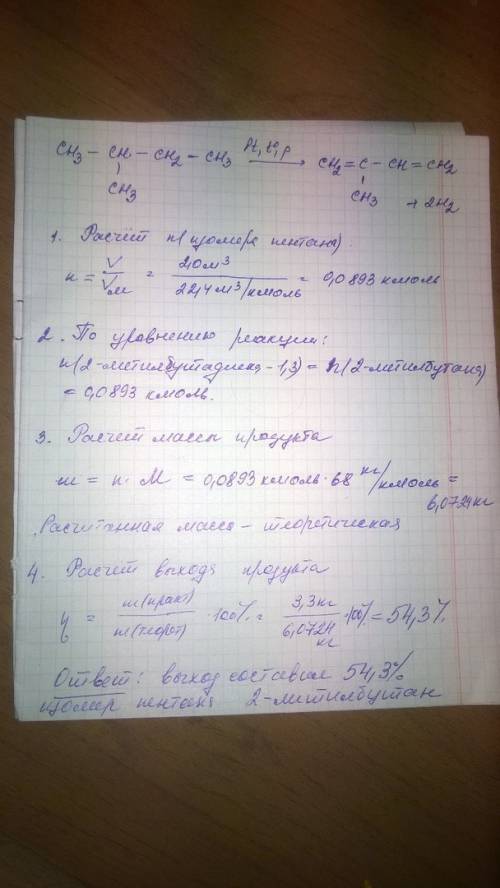 CH3 – CH – CH2 – CH3 Pt, t°, p → CH2 = C – CH = CH2
CH3 CH3 + 2H2
1. Расчёт n(изомера пентана)
n = V/Vм = 2,0 м³ / 22,4 м³/кмоль = 0,0893 кмоль
2. По уравнению реакции:
n(2-метилбутадиена-1,3) = n(2-метилбутана)
= 0,0893 кмоль.
3. Расчет массы продукта
m = n · M = 0,0893 кмоль · 68 кг/кмоль =
6,0724 кг
Расчитанная масса – теоретическая
4. Расчет выхода продукта
η = m(практ)/m(теорет) · 100% = 3,3 кг/6,0724 кг · 100% = 54,3%
Ответ: выход составил 54,3%
изомер пентана 2-метилбутан